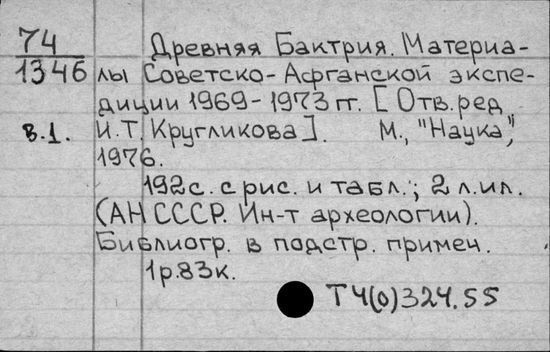 74
1346
Древняя Бактрия. Материа-
лы Советско-Афганской экспе-
диции 1969-1973 гг. [Отв. ред.
в.1.
И.Т. Кругликова]. М., "Наука",
1976.
192с. с рис. и табл.; 2 л. ил.
(АН СССР. Ин-т археологии).
Библиогр. в подстр. примеч.
1р.83к.
Т4(0)324.55